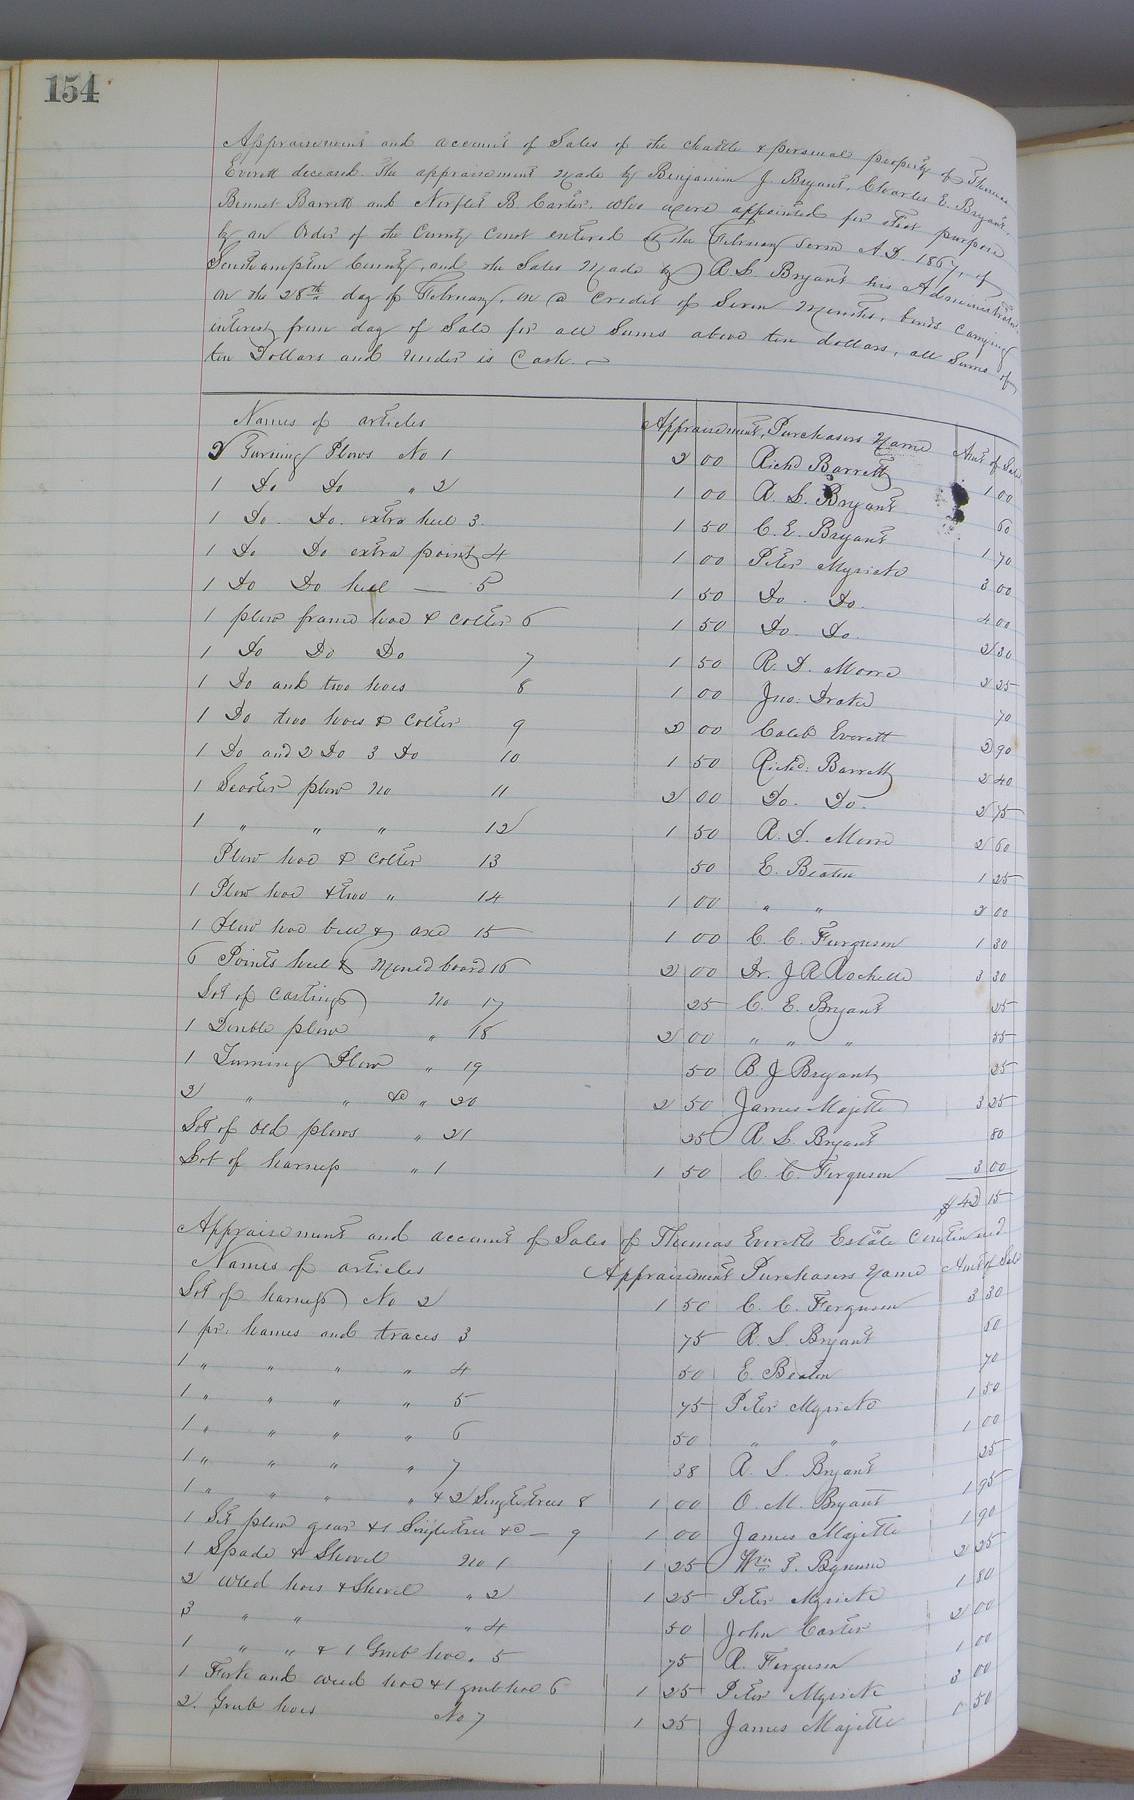 154
Appraisement and account of Sales of the chattle & personal property of Thomas
Everett deceased. The appraisement Made by Benjamin J. Bryant, Charles E. Bryant,
Bennet Barrett and Norflet B. Carter, who were appointed for that purpose
by an Order of the County Court entered the February term A.D. 1867, of
Southampton County, and the Sales Made by R. S. Bryant his Administrator
on the 28th day of February, on a credit of Seven Months, bonds carrying
interest from day of Sale for all Sums above ten dollars, all Sums of
ten Dollars and under is Cash.
Names of articles Appraisement, Purchasers Name Amt of Sale
2 Turning Plows No 1 2 00 Richd Barrett 1 00
1 Do Do " 2 1 00 R. S. Bryant 60
1 Do. Do. extra heel 3. 1 50 C. E. Bryant 1 70
1 Do Do extra point 4 1 00 Peter Myrick 3 00
1 Do Do heel — 5 1 50 Do. Do. 4 00
1 plow frame hoe & colter 6 1 50 Do. Do. 2 30
1 Do Do Do 7 1 50 R. D. Moore 2 25
1 Do and two hoes 8 1 00 Jno. Drake 70
1 Do two hoes & colter 9 2 00 Caleb Everett 2 90
1 Do and 2 Do 3 Do 10 1 50 Richd. Barrett 2 40
1 Scooter plow No 11 2 00 Do. Do. 2 75
1 " " " 12 1 50 R. D. Moore 2 60
Plow hoe & colter 13 50 E. Beaton 1 25
1 Plow hoe & two " 14 1 00 " " 2 00
1 Plow hoe bell & axe 15 1 00 C. C. Ferguson 1 30
6 Points heel & Mould board 16 2 00 Dr. J R Rochelle 3 30
Lot of castings No 17 25 C. E. Bryant 25
1 Double plow " 18 2 00 " " " 55
1 Turning Plow " 19 50 B. J Bryant 25
2 " " &c " 20 2 50 James Majette 3 25
Lot of old plows " 21 25 R S. Bryant 80
Lot of harness " 1 1 50 C. C. Ferguson 3 00
$ 42 15
Appraisement and account of Sales of Thomas Everetts Estate Continued
Names of articles Appraisement Purchasers Name Amt of Sale
Lot of harness No 2 1 50 C. C. Ferguson 3 30
1 pr. hames and traces 3 75 R. S. Bryant 50
1 " " " " 4 50 E. Beaton 70
1 " " " " 5 75 Peter Myrick 1 50
1 " " " " 6 50 " " 1 00
1 " " " " 7 38 R. S. Bryant 25
1 " " " " & 2 Singletrees 8 1 00 O. M. Bryant 1 95
1 Set plow gear & 1 Singletree &c — 9 1 00 James Majette 1 90
1 Spade & Shovel No 1 1 25 Wm. T. Bynum 2 25
2 weed hoes & Shovel " 2 1 25 Peter Myrick 1 80
3 " " " 4 50 John Carter 2 00
1 " " & 1 Grub hoe. 5 75 R. Ferguson 1 00
1 Fork and weed hoe & 1 grub hoe 6 1 25 Peter Myrick 3 00
2. Grub hoes No 7 1 25 James Majette 1 50